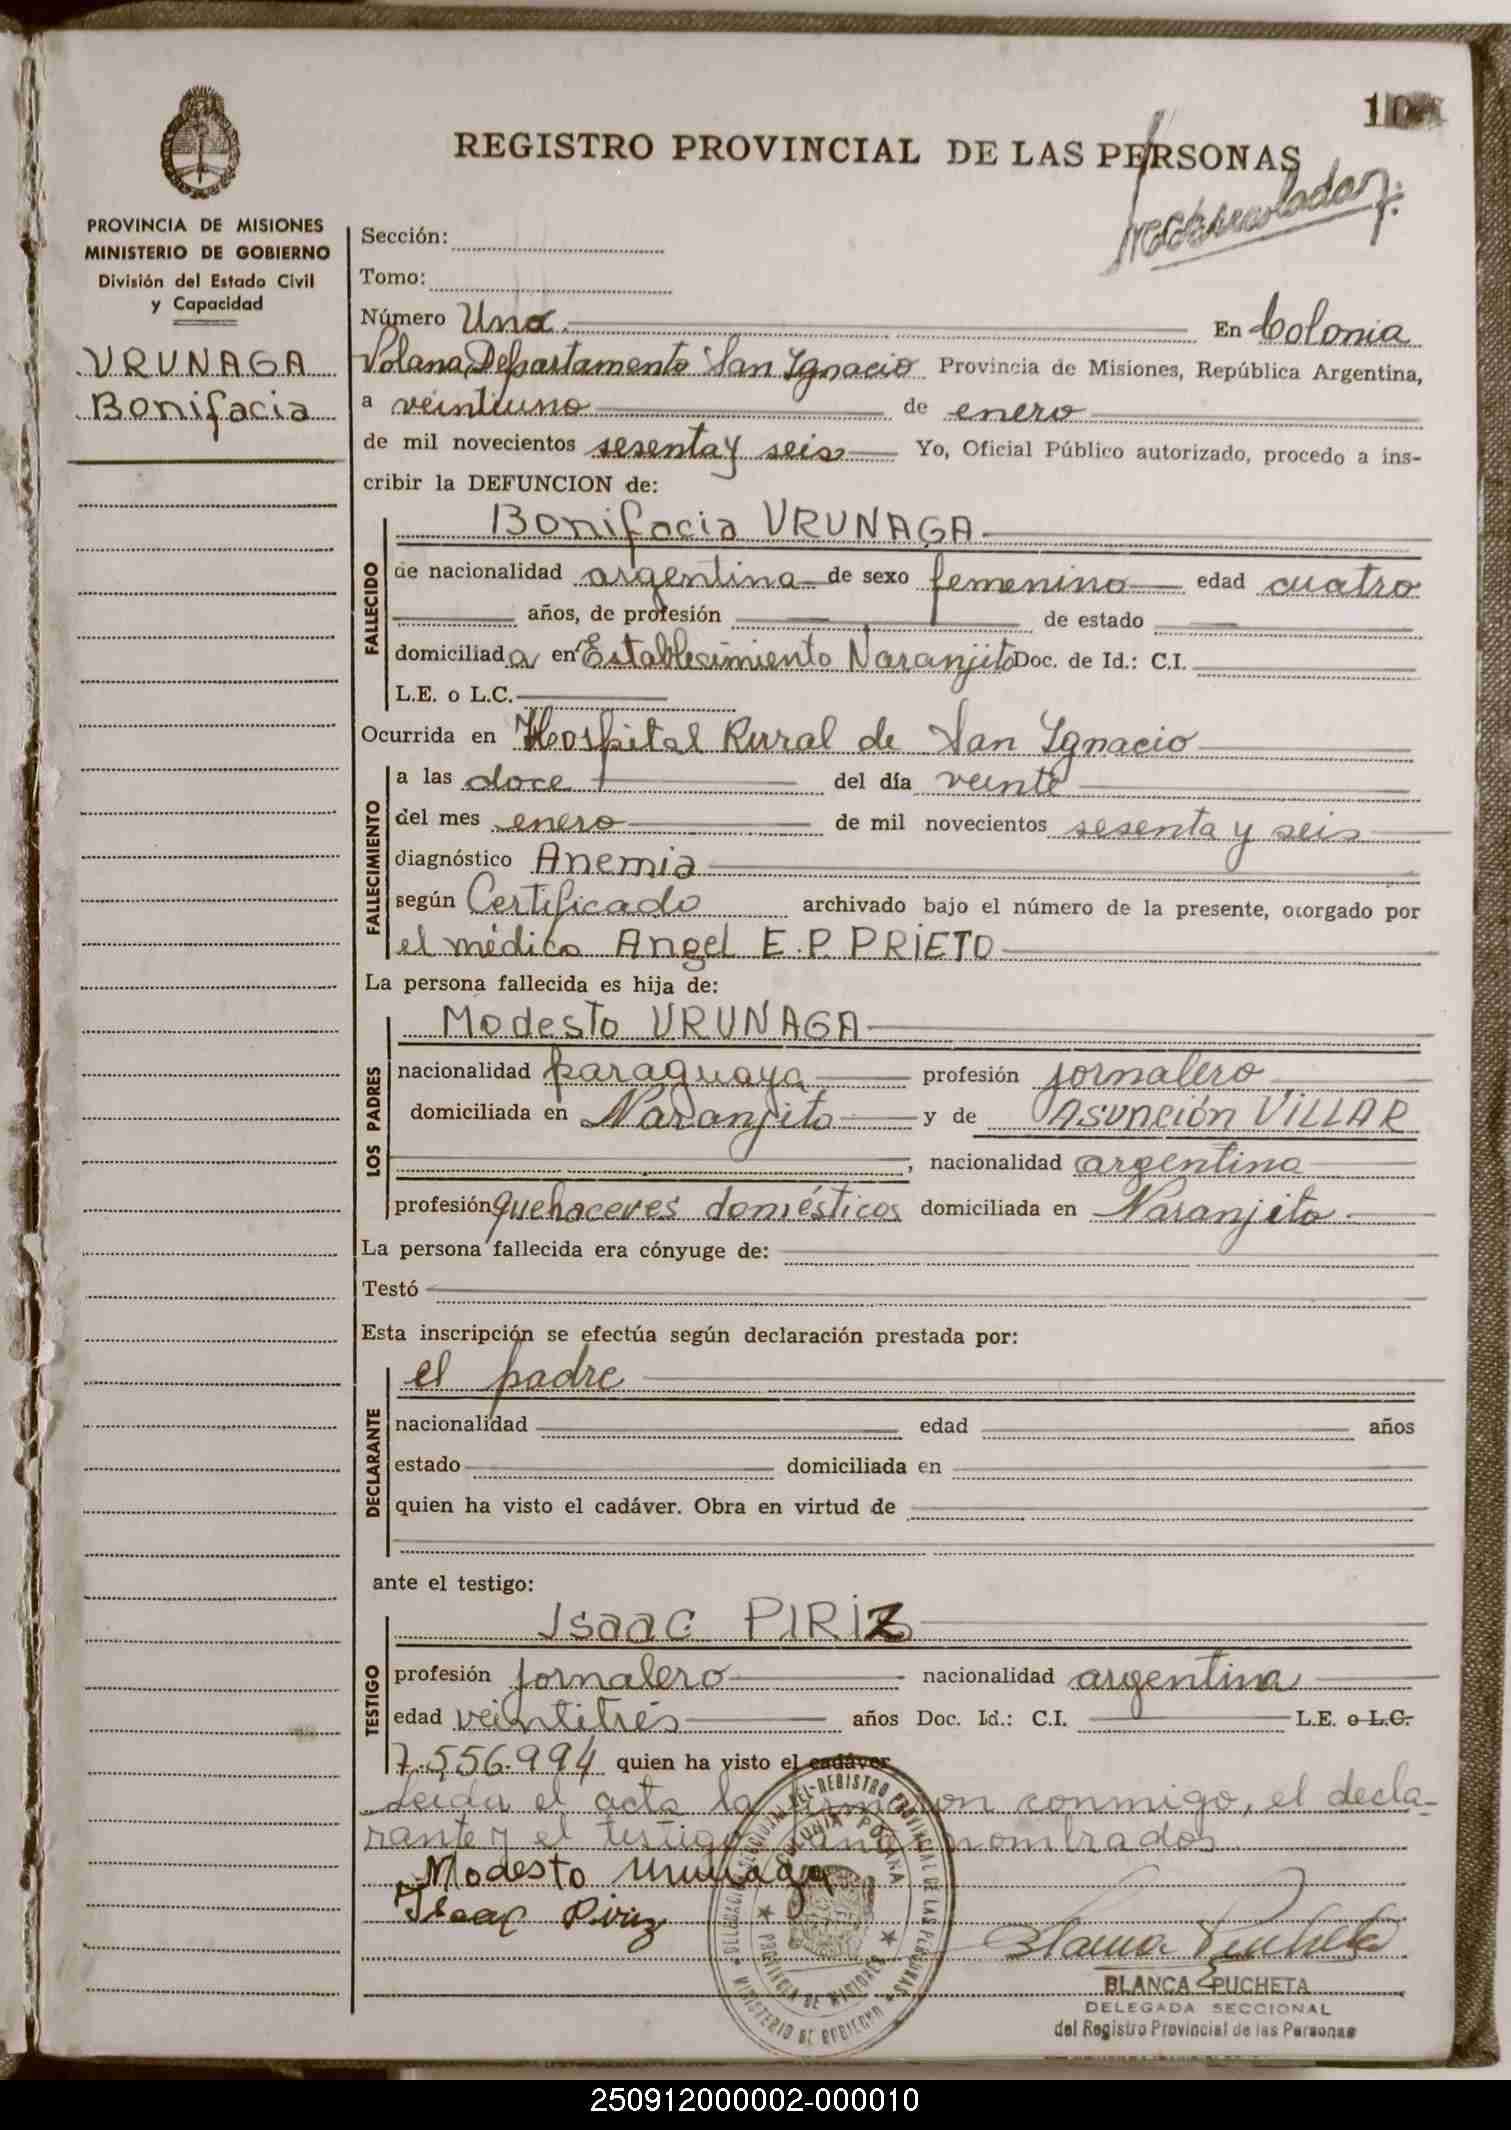 REGISTRO PROVINCIAL DE LAS PERSONAS
PROVINCIA DE MISIONES
MINISTERIO DE GOBIERNO
División del Estado Civil
y Capacidad
URUNAGA
Bonifacia
Sección:
Tomo:
Número Una En Colonia
Polana, Departamento San Ignacio Provincia de Misiones, República Argentina,
a veintiuno de enero
de mil novecientos sesenta y seis Yo, Oficial Público autorizado, procedo a ins-
cribir la DEFUNCION de:
FALLECIDO
Bonifacia URUNAGA
de nacionalidad argentina de sexo femenino edad cuatro
años, de profesión de estado
domiciliada en Establecimiento Naranjito Doc. de Id.: C.I.
L.E. o L.C.
Ocurrida en Hospital Rural de San Ignacio
FALLECIMIENTO
a las doce del día veinte
del mes enero de mil novecientos sesenta y seis
diagnóstico Anemia
según Certificado archivado bajo el número de la presente, otorgado por
el médico Angel E. P. PRIETO
La persona fallecida es hija de:
LOS PADRES
Modesto URUNAGA
nacionalidad paraguaya profesión jornalero
domiciliada en Naranjito y de Asunción VILLAR
, nacionalidad argentina
profesión quehaceres domésticos domiciliada en Naranjito
La persona fallecida era cónyuge de:
Testó
Esta inscripción se efectúa según declaración prestada por:
DECLARANTE
el padre
nacionalidad edad años
estado domiciliada en
quien ha visto el cadáver. Obra en virtud de
ante el testigo:
TESTIGO
Isaac PIRIZ
profesión jornalero nacionalidad argentina
edad veintitrés años Doc. Id.: C.I. L.E. o L.C.
7.556.994 quien ha visto el cadáver
Leida el acta la firmaron conmigo, el decla-
rante y el testigo nombrados
Modesto Urunaga
Isaac Piriz
Blanca Pucheta
BLANCA PUCHETA
DELEGADA SECCIONAL
del Registro Provincial de las Personas
DELEGACION SECCIONAL DEL REGISTRO PROVINCIAL DE LAS PERSONAS
COLONIA POLANA
PROVINCIA DE MISIONES
MINISTERIO DE GOBIERNO
250912000002-000010